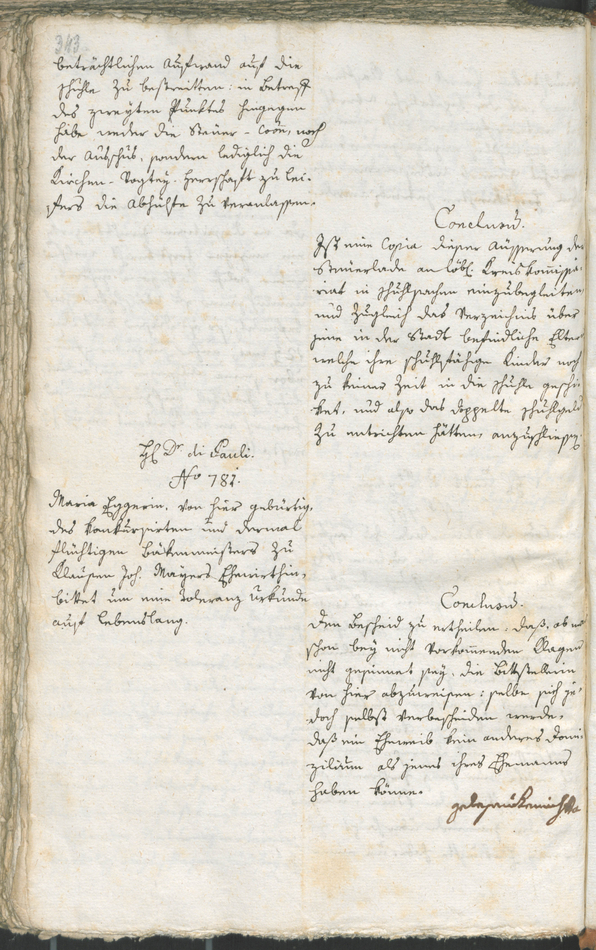 343.
beträchtlichen Aufwand auf die
Schuhle zu bestreitten: in Betreff
des zweÿten Punktes hingegen
habe weder die Steuer-Coõn, noch
der Ausschus, sondern lediglich die
Kirchen-Vogteÿ-Herrschaft zu Lei-
fers die Abhülfe zu veranlassen.
Conclusũ.
Ist eine Copia dieser Äusserung der
Steuerlade an löbl. Kreiskom̃issa-
riat in Schuhlsachen einzubegleiten
und zugleich das Verzeichnis über
jene in der Stadt befindliche Eltern
welche ihre schuhlfähige Kinder noch
zu keiner Zeit in die Schuhle geschi-
ket, und also das doppelte Schuhlgeld
zu entrichten hätten, anzuschliessen.
H. Dr di Pauli.
No 781.
Maria Eggerin, von hier gebürtig,
des konkursirten und dermal
flüchtigen Bäkenmeisters zu
Klausen Joh. Mayers Ehewirthin,
bittet um eine Toleranz Urkunde
auf lebenslang.
Conclusũ.
Den Bescheid zu ertheilen, daß, ob
schon beÿ nicht vorkom̃enden Klagen
nicht gesinnet seÿ, die Bittstellerin
von hier abzuweisen; selbe sich je-
doch selbst verbescheiden werde,
daß ein Eheweib kein anderes Domi-
zilium als jenes ihres Ehemanns
haben könne.